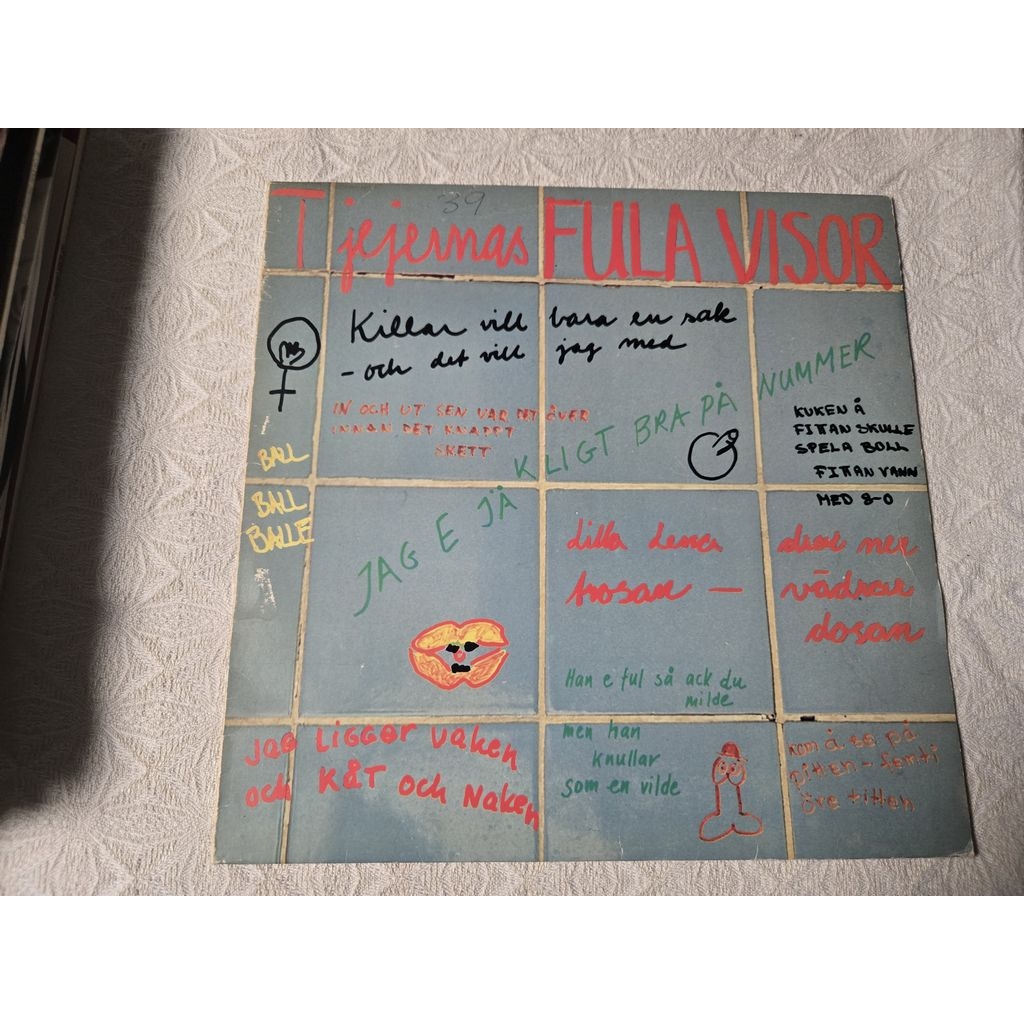 39
Tjejernas FULA VISOR
Killar vill bara en sak
- och det vill jag med
IN OCH UT SEN VAR DET ÖVER
INNAN DET KNAPPT
SKETT
JAG E JÄKLIGT BRA PÅ NUMMER
KUKEN Å
FITTAN SKULLE
SPELA BOLL
FITTAN VANN
MED 8-0
BALL
BALL
BALLE
trosan —
dosan
Han e ful så ack du
milde
men han
knullar
som en vilde
Jag LIGGER Vaken
och KÅT och Naken
kom å se på
pitten - femti
öre titten